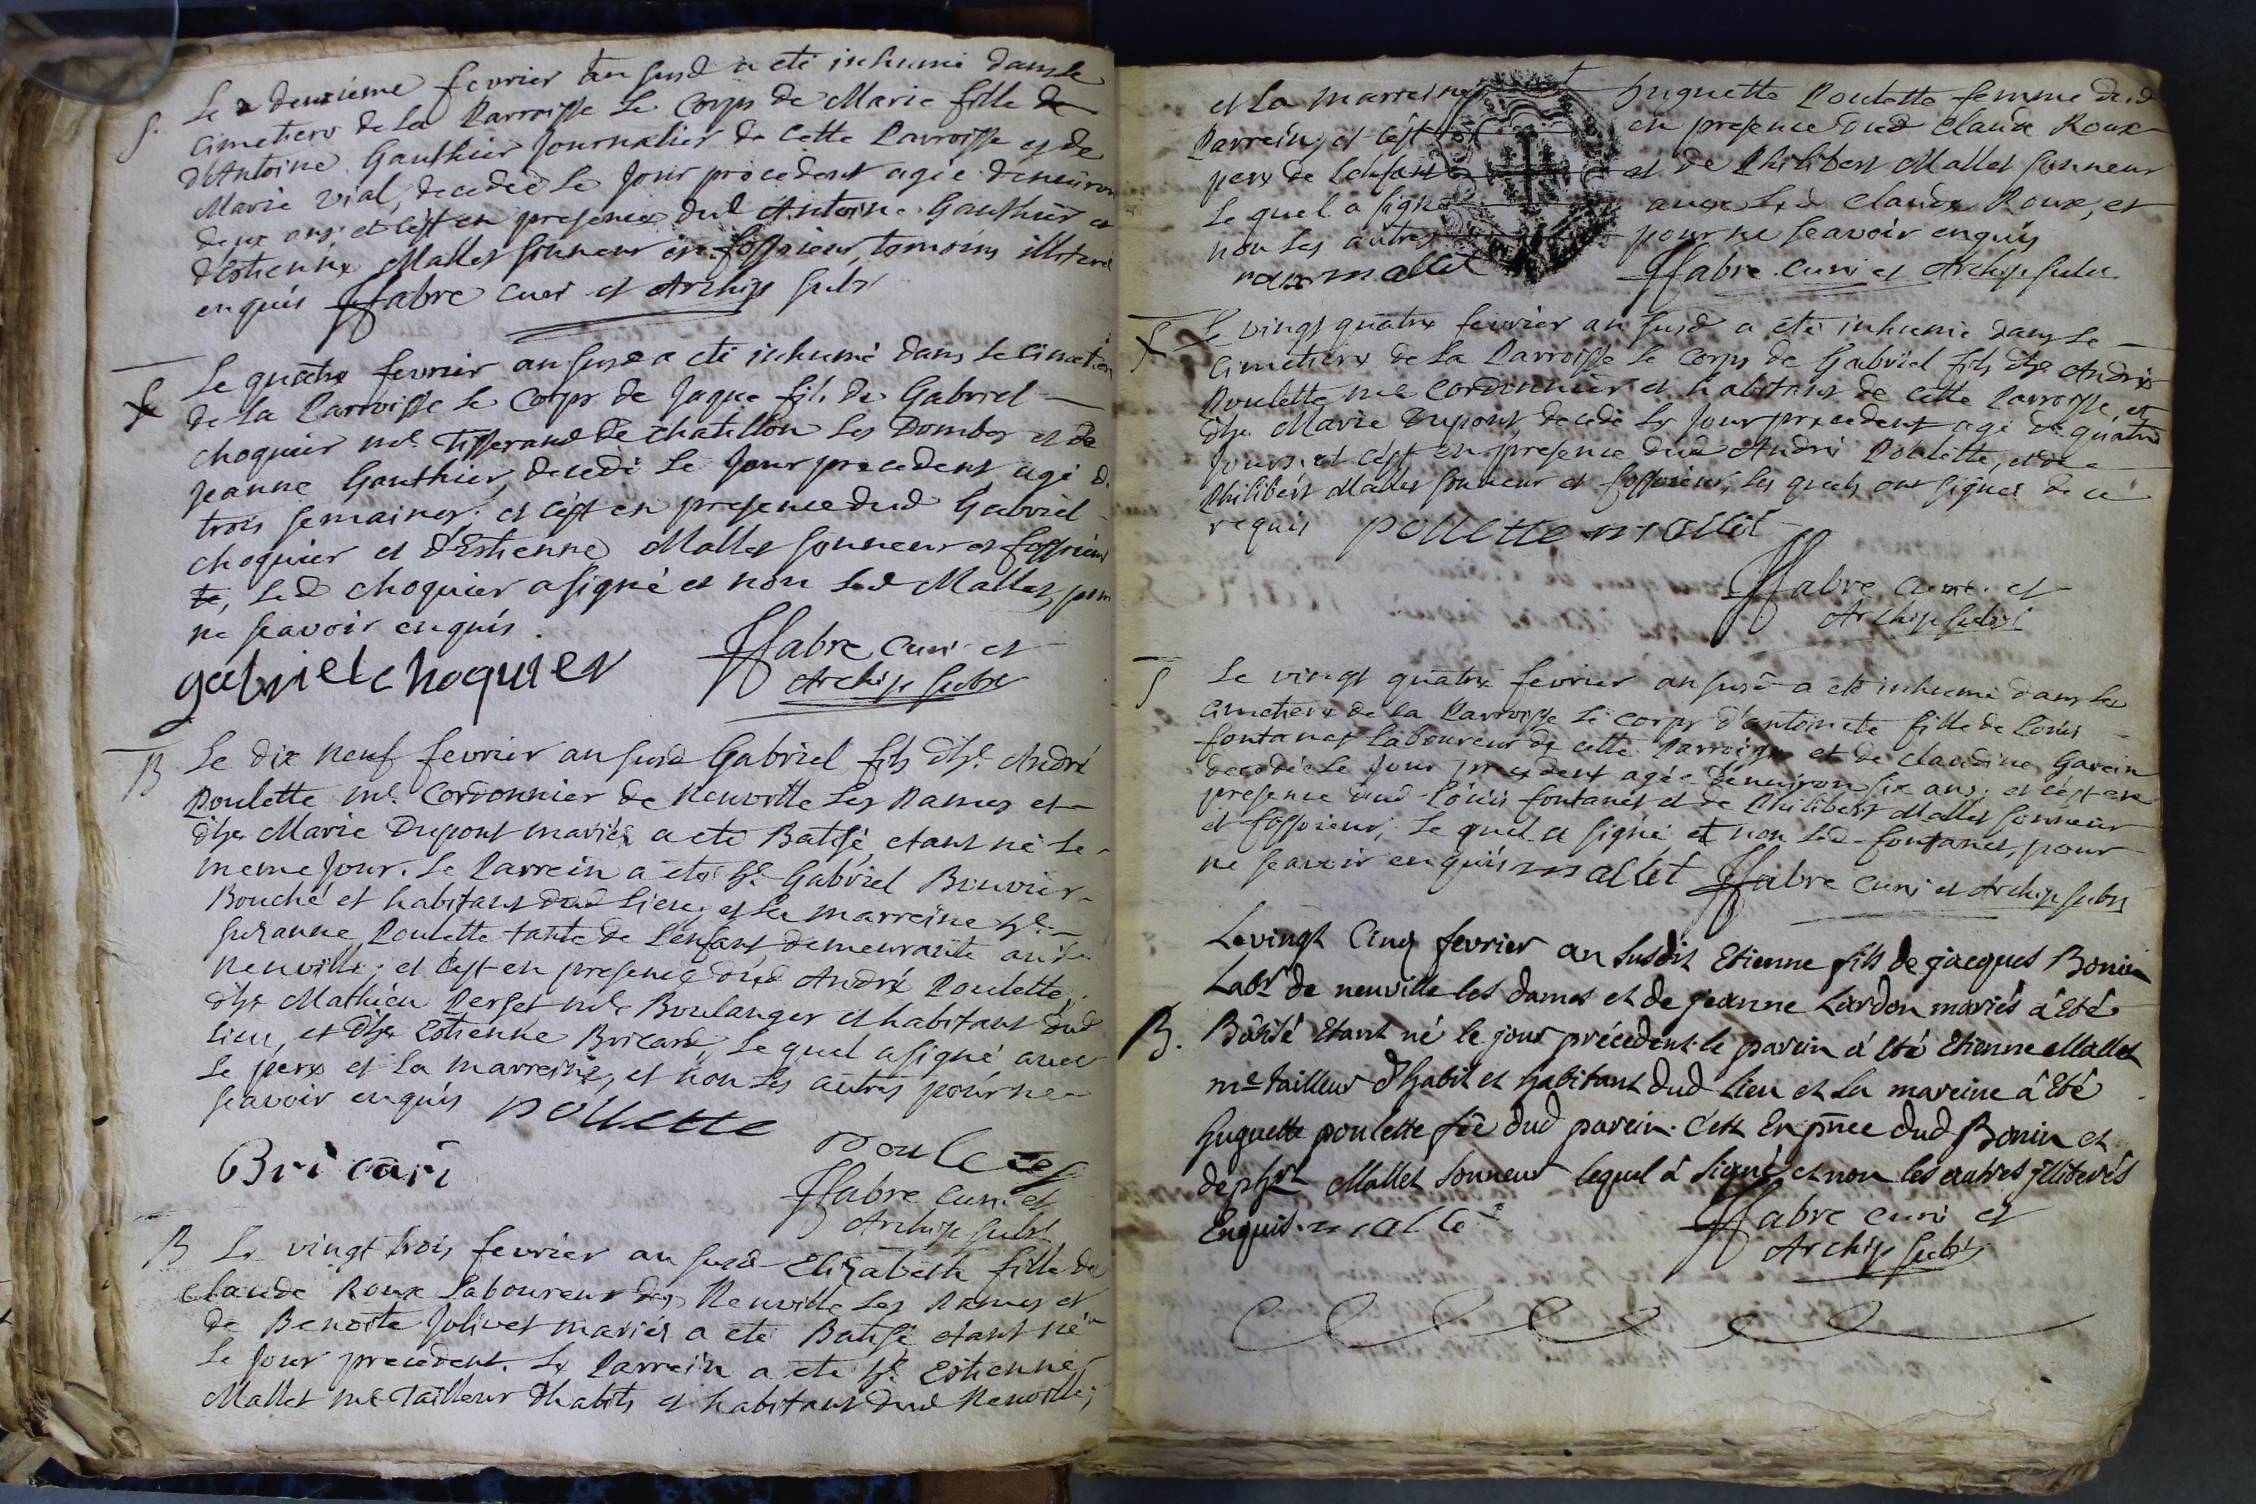 S. Le deuxiéme fevrier an susd a eté inhumé dans le
cimetiere de la Parroisse le Corps de Marie fille de
d'Antoine Gauthier Journalier de cette Parroisse et de
Marie Vial, decedée le Jour precedent agée d'environ
deux ans; et c'est en presence dud Antoine Gauthier et
d'Estienne Mallet sonneur et fossoieur, temoins illiteré
enquis ffabre curé et Archip subs
S Le quatre fevrier an susd a eté inhumé dans le cimetiere
de la Parroisse le Corps de Jaque fils de Gabriel
choquier me Tisserand de chatillon les Dombes et de
Jeanne Gauthier, decedé le Jour precedent agé d.
trois semaines; et c'est en presence dud Gabriel
choquier et d'Estienne Mallet sonneur et fossoieur
te, led choquier a signé et non led Mallet, pour
ne scavoir enquis.
gabriel choquier ffabre curé et
Archip subs
B Le dix neuf fevrier an susd Gabriel fils d'hle André
Poulette me Cordonnier de Neuville les Dames et
d'hle Marie Dupont mariés a eté Batisé, etant né le
meme Jour. Le Parrein a eté hle Gabriel Bouvier
Bouché et habitant dud lieu; et la marreine hle
Suzanne Poulette tante de l'enfant demeurante aud.
Neuville; et c'est en presence dud André Poulette,
d'hle Mathieu Perset me Boulanger et habitant dud
lieu, et d'hle Estienne Bricard, le quel a signé avec
le pere et la marreine, et non les autres pour ne
scavoir enquis pollette
Bricari Poulete
ffabre curé et
Archip subs
B Le vingt trois fevrier an susd Elizabeth fille de
Claude Roux Laboureur de Neuville les Dames et
de Benoite Jolivet mariés a eté Batisé etant né
le Jour precedent. Le Parrein a eté hle Estienne
Mallet me Tailleur d'habits et habitant dud Neuville;
et la marreine huguette Poulette femme dud
Parrein; et c'est en presence dud Claude Roux
pere de l'enfant et de Philibert Mallet sonneur
le quel a signé avec led Claude Roux, et
non les autres pour ne scavoir enquis
roux mallet ffabre curé et Archip subs
S Le vingt quatre fevrier an susd a eté inhumé dans le
cimetiere de la Parroisse le Corps de Gabriel fils d'hle André
Poulette me Cordonnier et habitant de cette Parroisse, et
d'hle Marie Dupont, decedé le Jour precedent agé de quatre
Jours; et c'est en presence dud André Poulette, et de
Philibert Mallet sonneur et fossoieur, les quels ont signés de ce
requis pollette mallet
ffabre curé et
Archip subs
S Le vingt quatre fevrier an susd a eté inhumé dans le
cimetiere de la Parroisse le corps d'antoinete fille de Louis
fontanet Laboureur de cette Parroisse et de claudine Garein
decedée le Jour precedent agée d'environ six ans; et c'est en
presence dud Louis fontanet et de Philibert Mallet sonneur
et fossoieur; le quel a signé, et non led fontanet, pour
ne scavoir enquis mallet ffabre curé et Archip subs
Le vingt Cinq fevrier an susdit Etienne fils de jacques Bonin
Labr de neuville les dames et de jeanne Lardon mariés â eté
B. Bâtisé etant né le jour précédent. le parein â eté Etienne Mallet
me tailleur d'habit et habitant dud lieu et la mareine â eté
huguette poulette fée dud parein. c'est En pnce dud Bonin et
de phbt Mallet sonneur lequel â signé, et non les autres illiterés
Enquis. mallet ffabre curé et
Archip subs